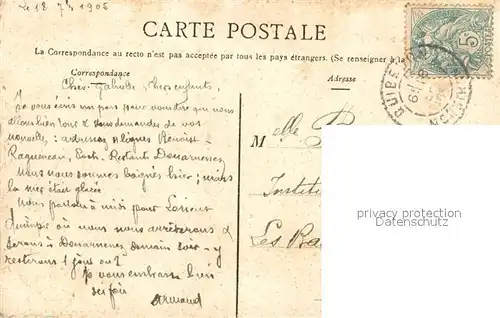 Le 18 7bre 1905
CARTE POSTALE
La Correspondance au recto n'est pas acceptée par tous les pays étrangers. (Se renseigner à la
Correspondance
Adresse
5
Cher Gabrielle, chers enfants,
Je vous écris un peu pour vous dire que nous
allons bien tous 2 vous demandes de vos
nouvelles : adressez lignes Renoist-
Ragueneau, Poste Restante Douarnenez
Nous nous sommes baignés hier ; mais
la mer était glacée
Nous partons à midi pour Lorient
Quimper où nous nous arrêterons &
serons à Douarnenez demain soir - y
resterons 1 jour ou 2
Je vous embrasse bien
des fois
Armand
Melle
Institu
Les
QUIBE
privacy protection
Datenschutz